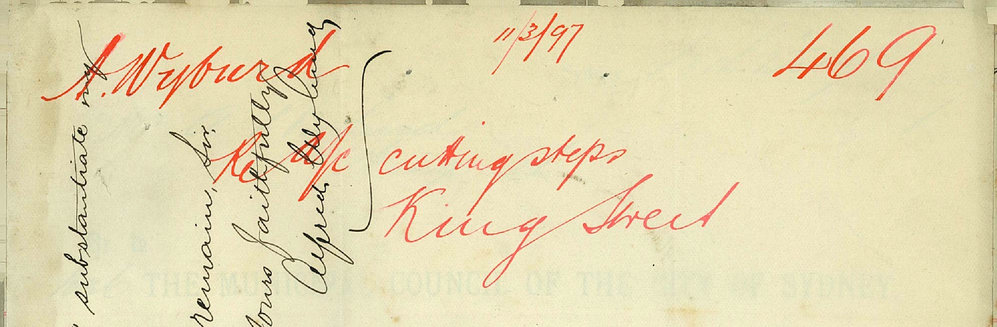 11/3/97
469
A. Wyburd
Re a/c cutting steps
King Street
substantiate my
remain, Sir,
Yours faithfully
Alfred Wyburd
THE MUNICIPAL COUNCIL OF THE CITY OF SYDNEY